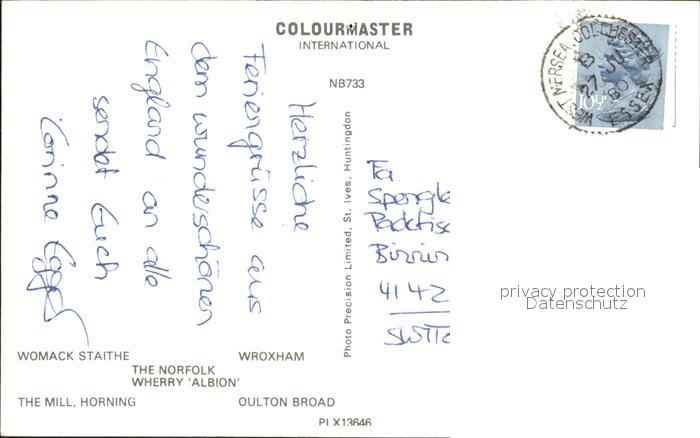 COLOURMASTER
INTERNATIONAL
NB733
WEST MERSEA, COLCHESTER
27 JU
80
ESSEX
10½P
Herzliche
Feriengrüsse aus
dem wunderschönen
England an alle
sendet Euch
Corinne
Photo Precision Limited, St. Ives, Huntingdon
Fa
Spengle
4142
privacy protection
Datenschutz
WOMACK STAITHE
WROXHAM
THE NORFOLK
WHERRY 'ALBION'
THE MILL, HORNING
OULTON BROAD
PLX13646